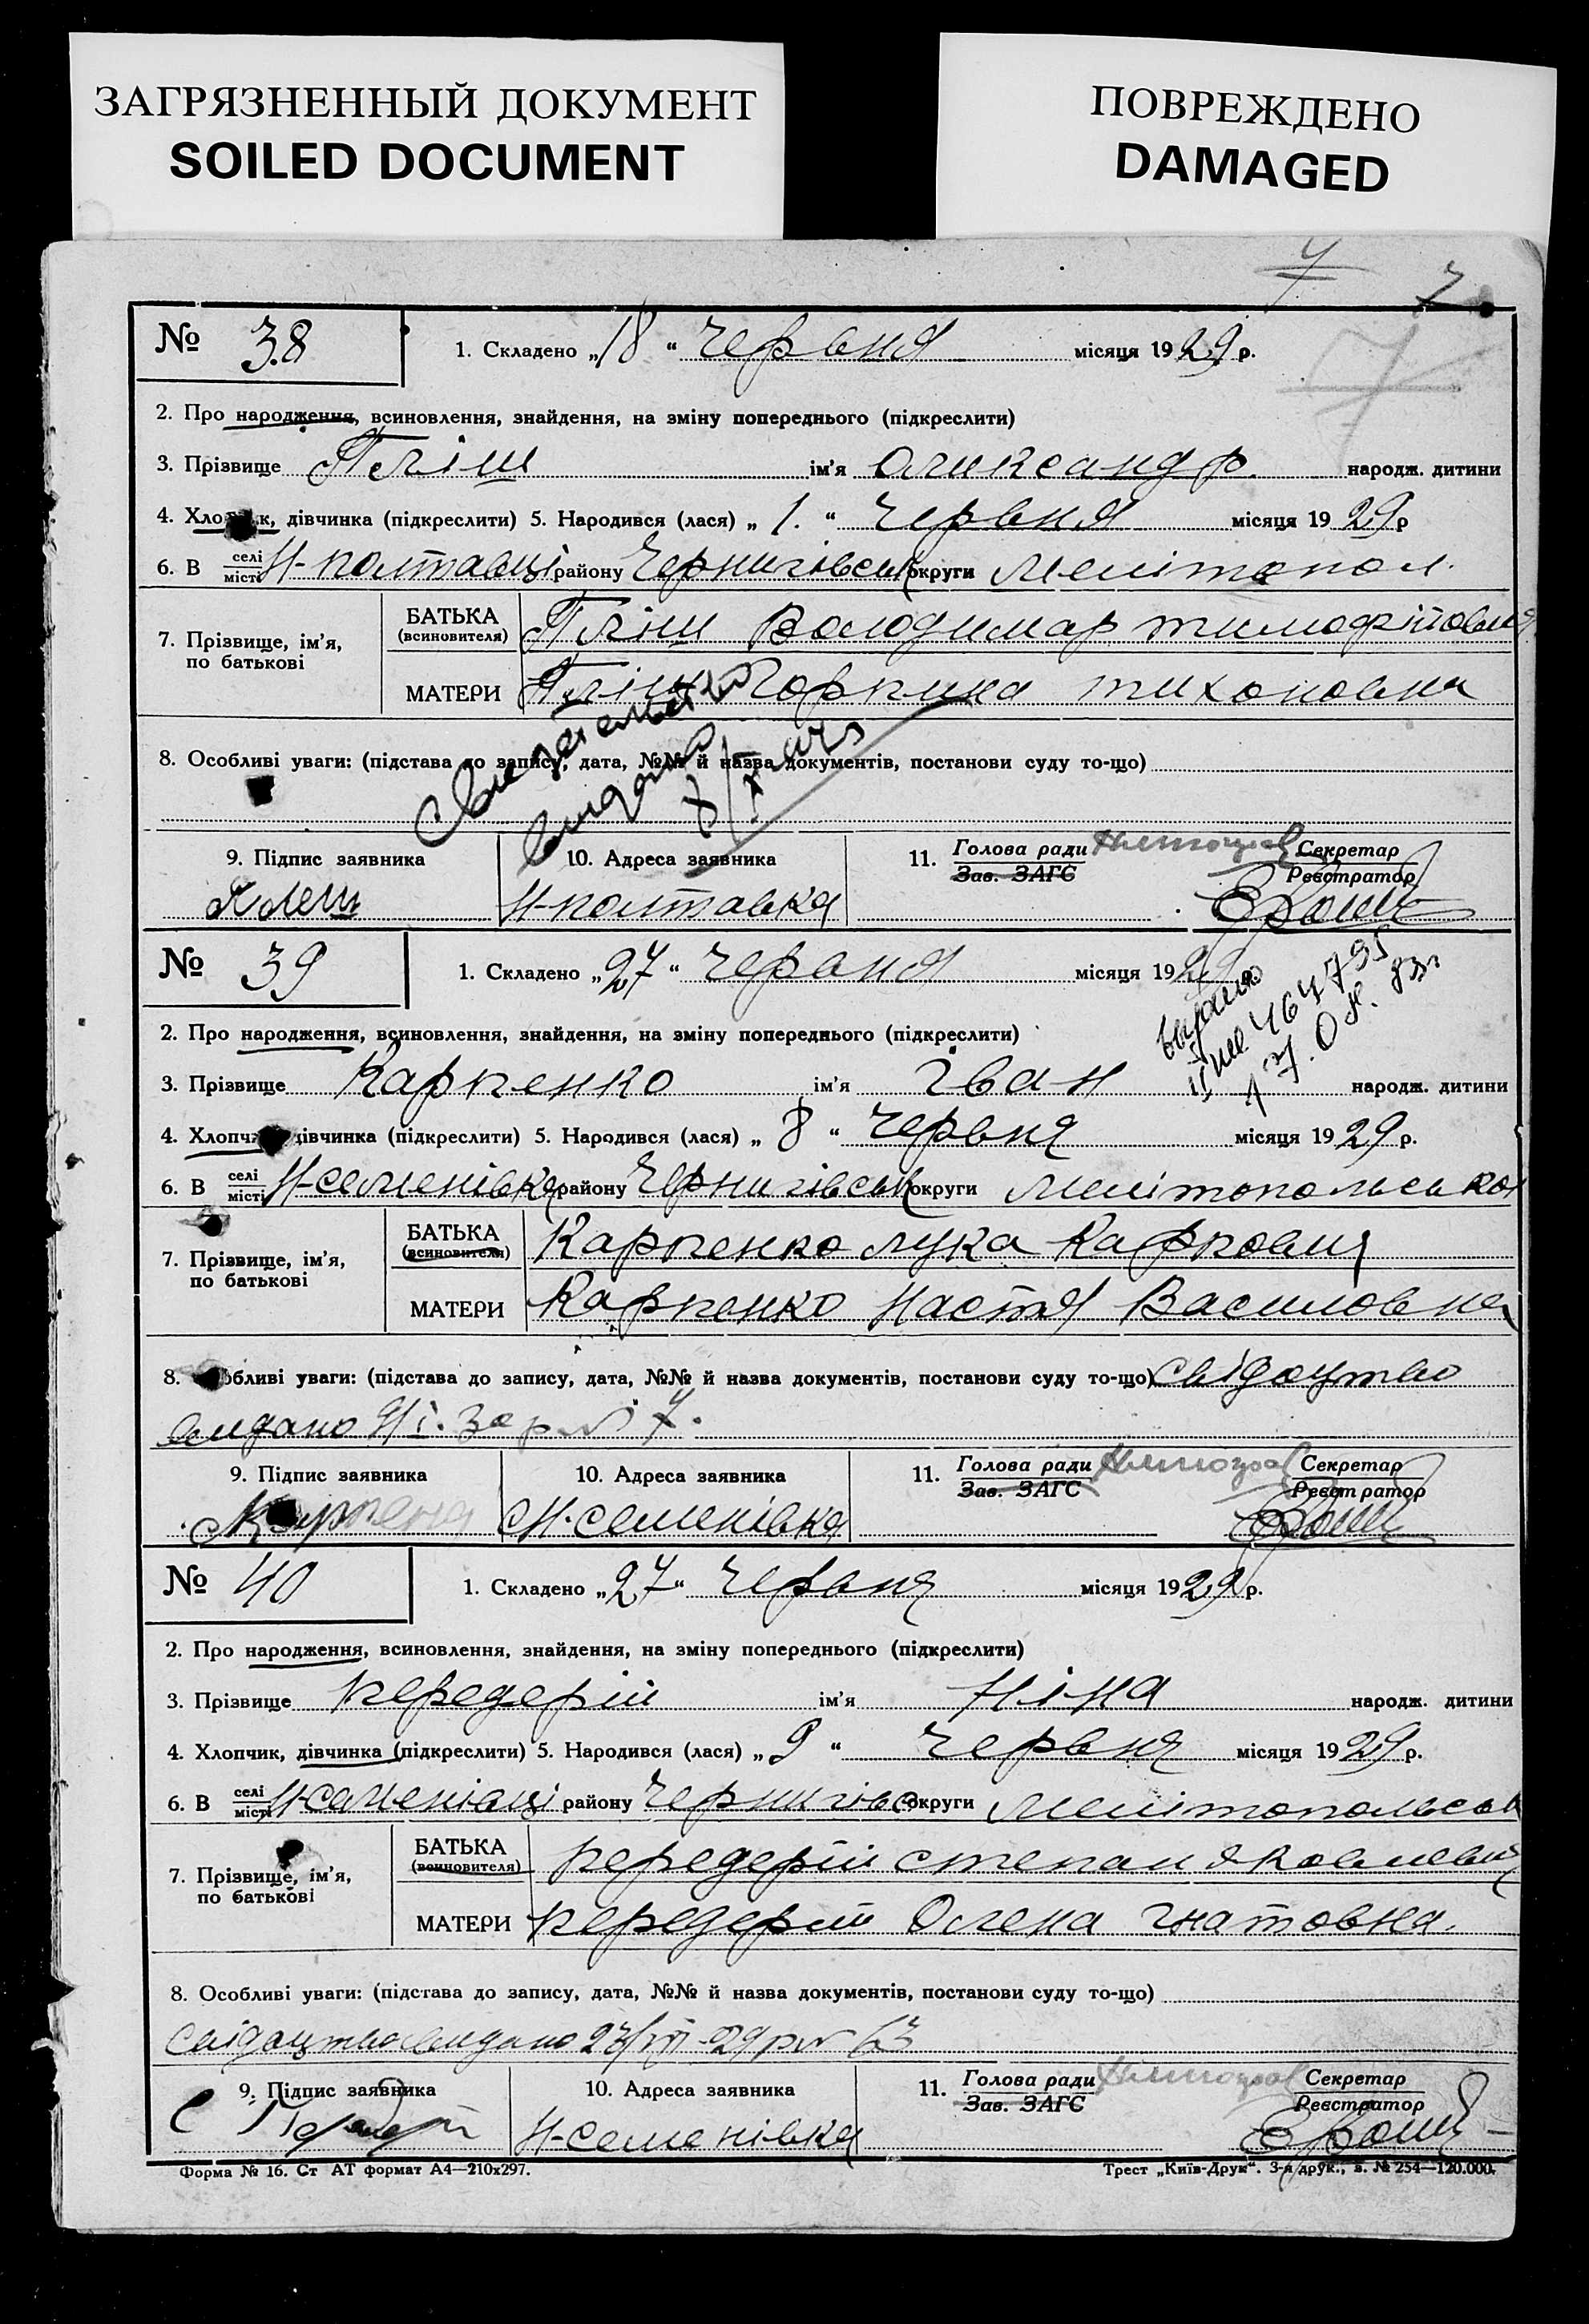 ЗАГРЯЗНЕННЫЙ ДОКУМЕНТ
SOILED DOCUMENT
ПОВРЕЖДЕНО
DAMAGED
7
№ 38
1. Складено „18“ червня місяця 1929 р.
2. Про народження, всиновлення, знайдення, на зміну попереднього (підкреслити)
3. Прізвище Пліш ім’я Олександр народж. дитини
4. Хлопчик, дівчинка (підкреслити) 5. Народився (лася) „1.“ червня місяця 1929 р
6. В селі місті Н-полтавці району Чернигівськ округи Мелітопол.
7. Прізвище, ім’я, по батькові
БАТЬКА (всиновителя) Пліш Володимар тимофійович
МАТЕРИ Пліш тихоновна
8. Особливі уваги: (підстава до запису, дата, №№ й назва документів, постанови суду то-що)
Свидетельство
выдано
9. Підпис заявника 10. Адреса заявника 11. Голова ради Зав. ЗАГС Секретар Реєстратор
Н-полтавка
№ 39
1. Складено „27“ червня місяця 1929
2. Про народження, всиновлення, знайдення, на зміну попереднього (підкреслити)
выдано
3. Прізвище Карпенко ім’я Іван народж. дитини
4. Хлопчик, дівчинка (підкреслити) 5. Народився (лася) „8“ червня місяця 1929 р.
6. В селі місті Н-семенівка району Чернигівськ округи Мелітопольської
7. Прізвище, ім’я, по батькові
БАТЬКА (всиновителя) Карпенко лука Карпович
МАТЕРИ Карпенко Настя Василовна
8. Особливі уваги: (підстава до запису, дата, №№ й назва документів, постанови суду то-що) Свідоцтво
видано
9. Підпис заявника 10. Адреса заявника 11. Голова ради Зав. ЗАГС Секретар Реєстратор
Н-семенівка
№ 40
1. Складено „27“ червня місяця 1929 р.
2. Про народження, всиновлення, знайдення, на зміну попереднього (підкреслити)
3. Прізвище передерій ім’я Ніна народж. дитини
4. Хлопчик, дівчинка (підкреслити) 5. Народився (лася) „9“ червня місяця 1929 р.
6. В селі місті Н-семенівці району Чернигівс округи Мелітопольськ
7. Прізвище, ім’я, по батькові
БАТЬКА (всиновителя) передерій степан Яковлевич
МАТЕРИ передерій Олена гнатовна.
8. Особливі уваги: (підстава до запису, дата, №№ й назва документів, постанови суду то-що)
Свідоцтво видано 23/VII-29 р № 63
9. Підпис заявника 10. Адреса заявника 11. Голова ради Зав. ЗАГС Секретар Реєстратор
Н-семенівка
Форма № 16. Ст АТ формат А4—210x297.
Трест „Київ-Друк“. 3-я друк., з. № 254—120.000.